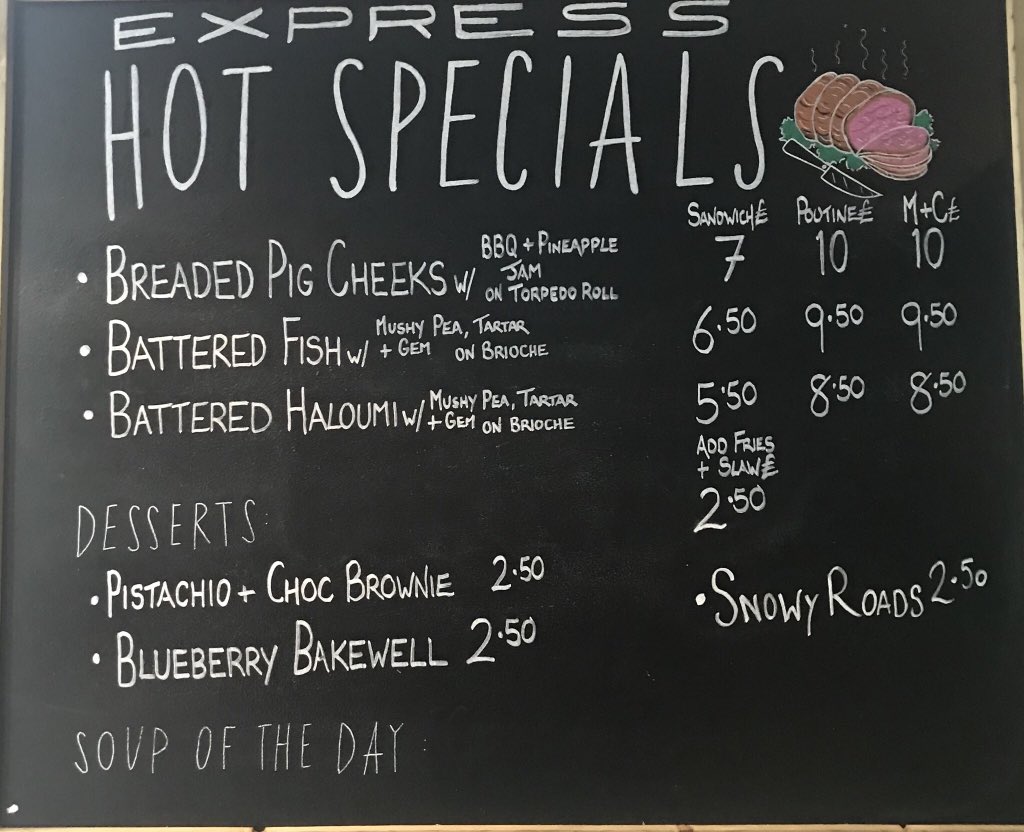 EXPRESS
HOT SPECIALS
SANDWICH £ POUTINE £ M+C £
• BREADED PIG CHEEKS W/ BBQ + PINEAPPLE JAM ON TORPEDO ROLL 7 10 10
• BATTERED FISH W/ MUSHY PEA, TARTAR + GEM ON BRIOCHE 6.50 9.50 9.50
• BATTERED HALOUMI W/ MUSHY PEA, TARTAR + GEM ON BRIOCHE 5.50 8.50 8.50
ADD FRIES
+ SLAW £
2.50
DESSERTS:
• PISTACHIO + CHOC BROWNIE 2.50
• SNOWY ROADS 2.50
• BLUEBERRY BAKEWELL 2.50
SOUP OF THE DAY: